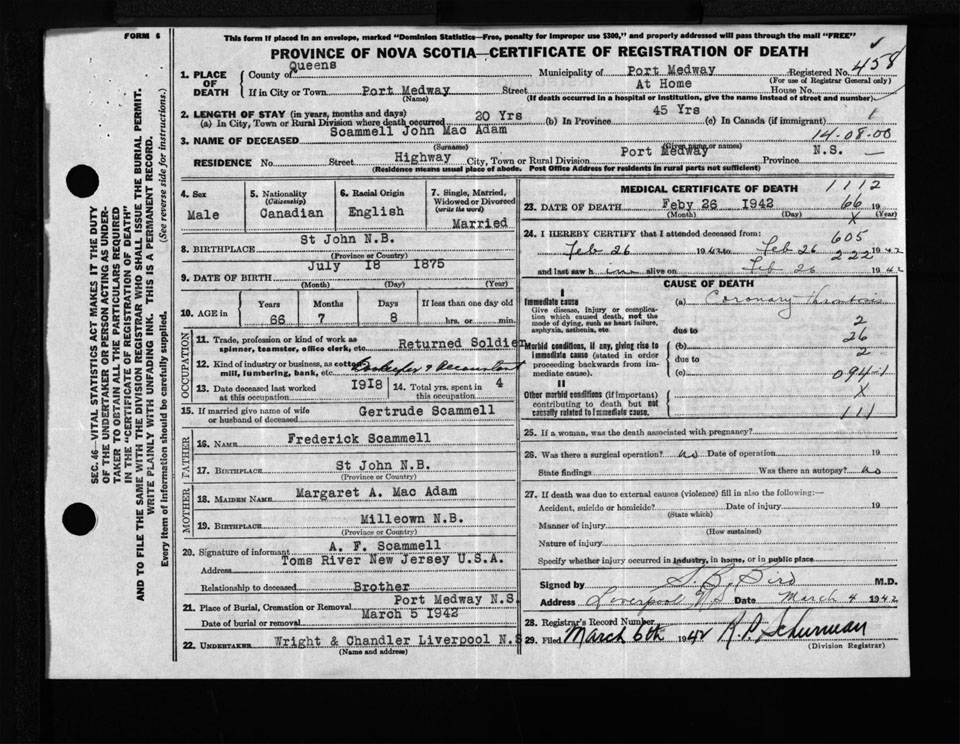 FORM 6
This form if placed in an envelope, marked "Dominion Statistics—Free, penalty for improper use $300," and properly addressed will pass through the mail "FREE"
PROVINCE OF NOVA SCOTIA—CERTIFICATE OF REGISTRATION OF DEATH
SEC. 46—VITAL STATISTICS ACT MAKES IT THE DUTY
OF THE UNDERTAKER OR PERSON ACTING AS UNDER-
TAKER TO OBTAIN ALL THE PARTICULARS REQUIRED
IN THE "CERTIFICATE OF REGISTRATION OF DEATH"
AND TO FILE THE SAME WITH THE DIVISION REGISTRAR WHO SHALL ISSUE THE BURIAL PERMIT.
WRITE PLAINLY WITH UNFADING INK. THIS IS A PERMANENT RECORD.
Every item of information should be carefully supplied. (See reverse side for instructions.)
1. PLACE OF DEATH
County of Queens Municipality of Port Medway Registered No. 458
(For use of Registrar General only)
If in City or Town Port Medway Street At Home House No.
(Name) (If death occurred in a hospital or institution, give the name instead of street and number)
2. LENGTH OF STAY (in years, months and days)
(a) In City, Town or Rural Division where death occurred 20 Yrs (b) In Province 45 Yrs (c) In Canada (if immigrant) 1
3. NAME OF DECEASED Scammell John Mac Adam 14-08-00
(Surname) (Given name or names)
RESIDENCE No. Street Highway City, Town or Rural Division Port Medway Province N.S.
(Residence means usual place of abode. Post Office Address for residents in rural parts not sufficient)
4. Sex Male
5. Nationality (Citizenship) Canadian
6. Racial Origin English
7. Single, Married, Widowed or Divorced (write the word) Married
8. BIRTHPLACE St John N.B.
(Province or Country)
9. DATE OF BIRTH July 18 1875
(Month) (Day) (Year)
10. AGE in Years 66 Months 7 Days 8 If less than one day old hrs. or min.
OCCUPATION
11. Trade, profession or kind of work as spinner, teamster, office clerk, etc. Returned Soldier
12. Kind of industry or business, as cotton mill, lumbering, bank, etc. & Accountant
13. Date deceased last worked at this occupation 1918
14. Total yrs. spent in this occupation 4
15. If married give name of wife or husband of deceased Gertrude Scammell
FATHER
16. NAME Frederick Scammell
17. BIRTHPLACE St John N.B.
(Province or Country)
MOTHER
18. MAIDEN NAME Margaret A. Mac Adam
19. BIRTHPLACE Milleown N.B.
(Province or Country)
20. Signature of informant A. F. Scammell
Address Toms River New Jersey U.S.A.
Relationship to deceased Brother
21. Place of Burial, Cremation or Removal Port Medway N.S.
Date of burial or removal March 5 1942
22. UNDERTAKER Wright & Chandler Liverpool N.S
(Name and address)
MEDICAL CERTIFICATE OF DEATH 1112
23. DATE OF DEATH Feby 26 1942 66 19
(Month) (Day) X (Year)
24. I HEREBY CERTIFY that I attended deceased from: 605
Feb 26 1942 to Feb 26 222 1942
and last saw him alive on Feb 26 1942
CAUSE OF DEATH
I
Immediate cause (a) Coronary thrombosis
Give disease, injury or complication which caused death, not the mode of dying, such as heart failure, asphyxia, asthenia, etc.
due to 2
Morbid conditions, if any, giving rise to immediate cause (stated in order proceeding backwards from immediate cause).
(b) 26
due to 2
(c) 094-1
II
Other morbid conditions (if important) contributing to death but not causally related to immediate cause. X
111
25. If a woman, was the death associated with pregnancy?
26. Was there a surgical operation? no Date of operation 19
State findings Was there an autopsy? no
27. If death was due to external causes (violence) fill in also the following:—
Accident, suicide or homicide? Date of injury 19
(State which)
Manner of injury
(How sustained)
Nature of injury
Specify whether injury occurred in industry, in home, or in public place
Signed by M.D.
Address Liverpool NS Date March 4 1942
28. Registrar's Record Number
29. Filed March 6th 1942 Schurman
(Division Registrar)